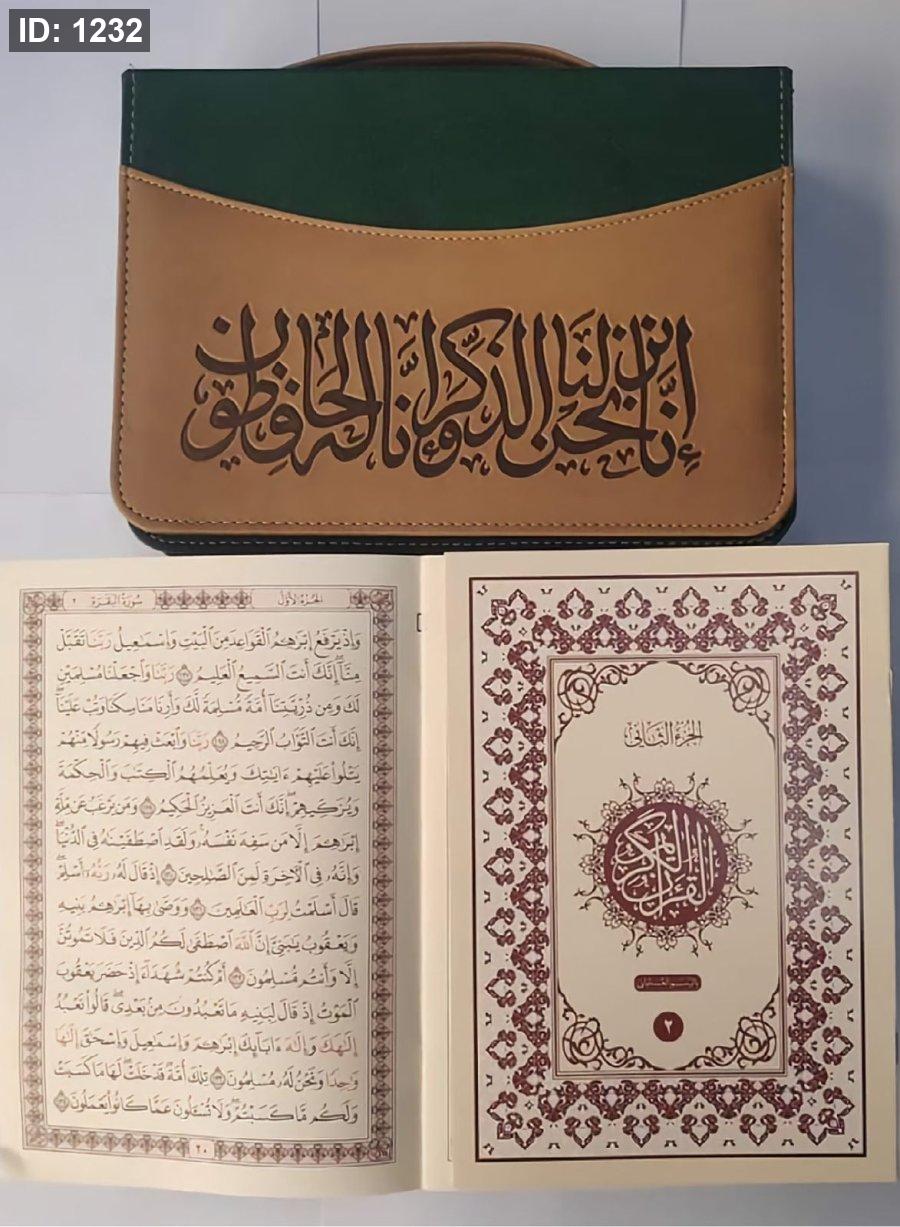 ID: 1232
إنا نحن نزلنا الذكر وإنا له لحافظون
سُورَةُ البَقَرَة ٢
الجُزءُ الأوَّلُ
وَإِذْ يَرْفَعُ إِبْرَٰهِـۧمُ ٱلْقَوَاعِدَ مِنَ ٱلْبَيْتِ وَإِسْمَـٰعِيلُ رَبَّنَا تَقَبَّلْ
مِنَّآ إِنَّكَ أَنتَ ٱلسَّمِيعُ ٱلْعَلِيمُ ١٢٧ رَبَّنَا وَٱجْعَلْنَا مُسْلِمَيْنِ
لَكَ وَمِن ذُرِّيَّتِنَآ أُمَّةً مُّسْلِمَةً لَّكَ وَأَرِنَا مَنَاسِكَنَا وَتُبْ عَلَيْنَآ
إِنَّكَ أَنتَ ٱلتَّوَّابُ ٱلرَّحِيمُ ١٢٨ رَبَّنَا وَٱبْعَثْ فِيهِمْ رَسُولًا مِّنْهُمْ
يَتْلُوا۟ عَلَيْهِمْ ءَايَـٰتِكَ وَيُعَلِّمُهُمُ ٱلْكِتَـٰبَ وَٱلْحِكْمَةَ
وَيُزَكِّيهِمْ إِنَّكَ أَنتَ ٱلْعَزِيزُ ٱلْحَكِيمُ ١٢٩ وَمَن يَرْغَبُ عَن مِّلَّةِ
إِبْرَٰهِـۧمَ إِلَّا مَن سَفِهَ نَفْسَهُۥ وَلَقَدِ ٱصْطَفَيْنَـٰهُ فِى ٱلدُّنْيَا
وَإِنَّهُۥ فِى ٱلْـَٔاخِرَةِ لَمِنَ ٱلصَّـٰلِحِينَ ١٣٠ إِذْ قَالَ لَهُۥ رَبُّهُۥٓ أَسْلِمْ
قَالَ أَسْلَمْتُ لِرَبِّ ٱلْعَـٰلَمِينَ ١٣١ وَوَصَّىٰ بِهَآ إِبْرَٰهِـۧمُ بَنِيهِ
وَيَعْقُوبُ يَـٰبَنِىَّ إِنَّ ٱللَّهَ ٱصْطَفَىٰ لَكُمُ ٱلدِّينَ فَلَا تَمُوتُنَّ
إِلَّا وَأَنتُم مُّسْلِمُونَ ١٣٢ أَمْ كُنتُمْ شُهَدَآءَ إِذْ حَضَرَ يَعْقُوبَ
ٱلْمَوْتُ إِذْ قَالَ لِبَنِيهِ مَا تَعْبُدُونَ مِنۢ بَعْدِى قَالُوا۟ نَعْبُدُ
إِلَـٰهَكَ وَإِلَـٰهَ ءَابَآئِكَ إِبْرَٰهِـۧمَ وَإِسْمَـٰعِيلَ وَإِسْحَـٰقَ إِلَـٰهًا
وَٰحِدًا وَنَحْنُ لَهُۥ مُسْلِمُونَ ١٣٣ تِلْكَ أُمَّةٌ قَدْ خَلَتْ لَهَا مَا كَسَبَتْ
وَلَكُم مَّا كَسَبْتُمْ وَلَا تُسْـَٔلُونَ عَمَّا كَانُوا۟ يَعْمَلُونَ ١٣٤
٢٠
الجُزءُ الثَّاني
القرآن الكريم
بالرسم العثماني
٢